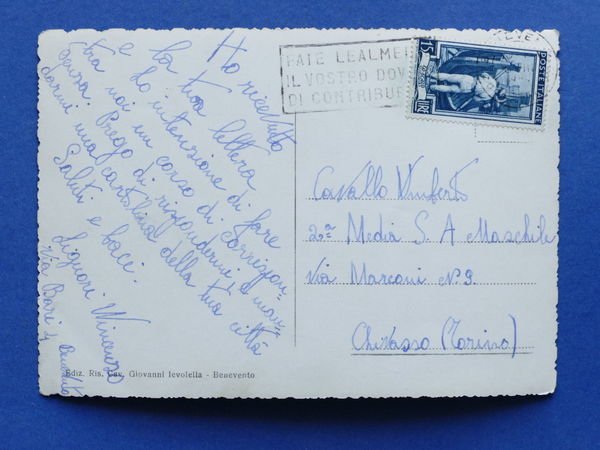 Ho ricevuto
la tua lettera
e ho intenzione di fare
tra noi un corso di corrispon-
denza. Prego di rispondermi e man-
darmi una cartolina della tua città
Saluti e baci.
Liguori Vincenzo
Via Bari 4
FATE LEALME
IL VOSTRO DOV
DI CONTRIBUE
15
LIRE
POSTE ITALIANE
Cavallo Umberto
2ª Media S. A Maschile
Via Marconi Nº 9.
Chivasso (Torino)
Ediz. Ris. Cav. Giovanni Ievolella - Benevento